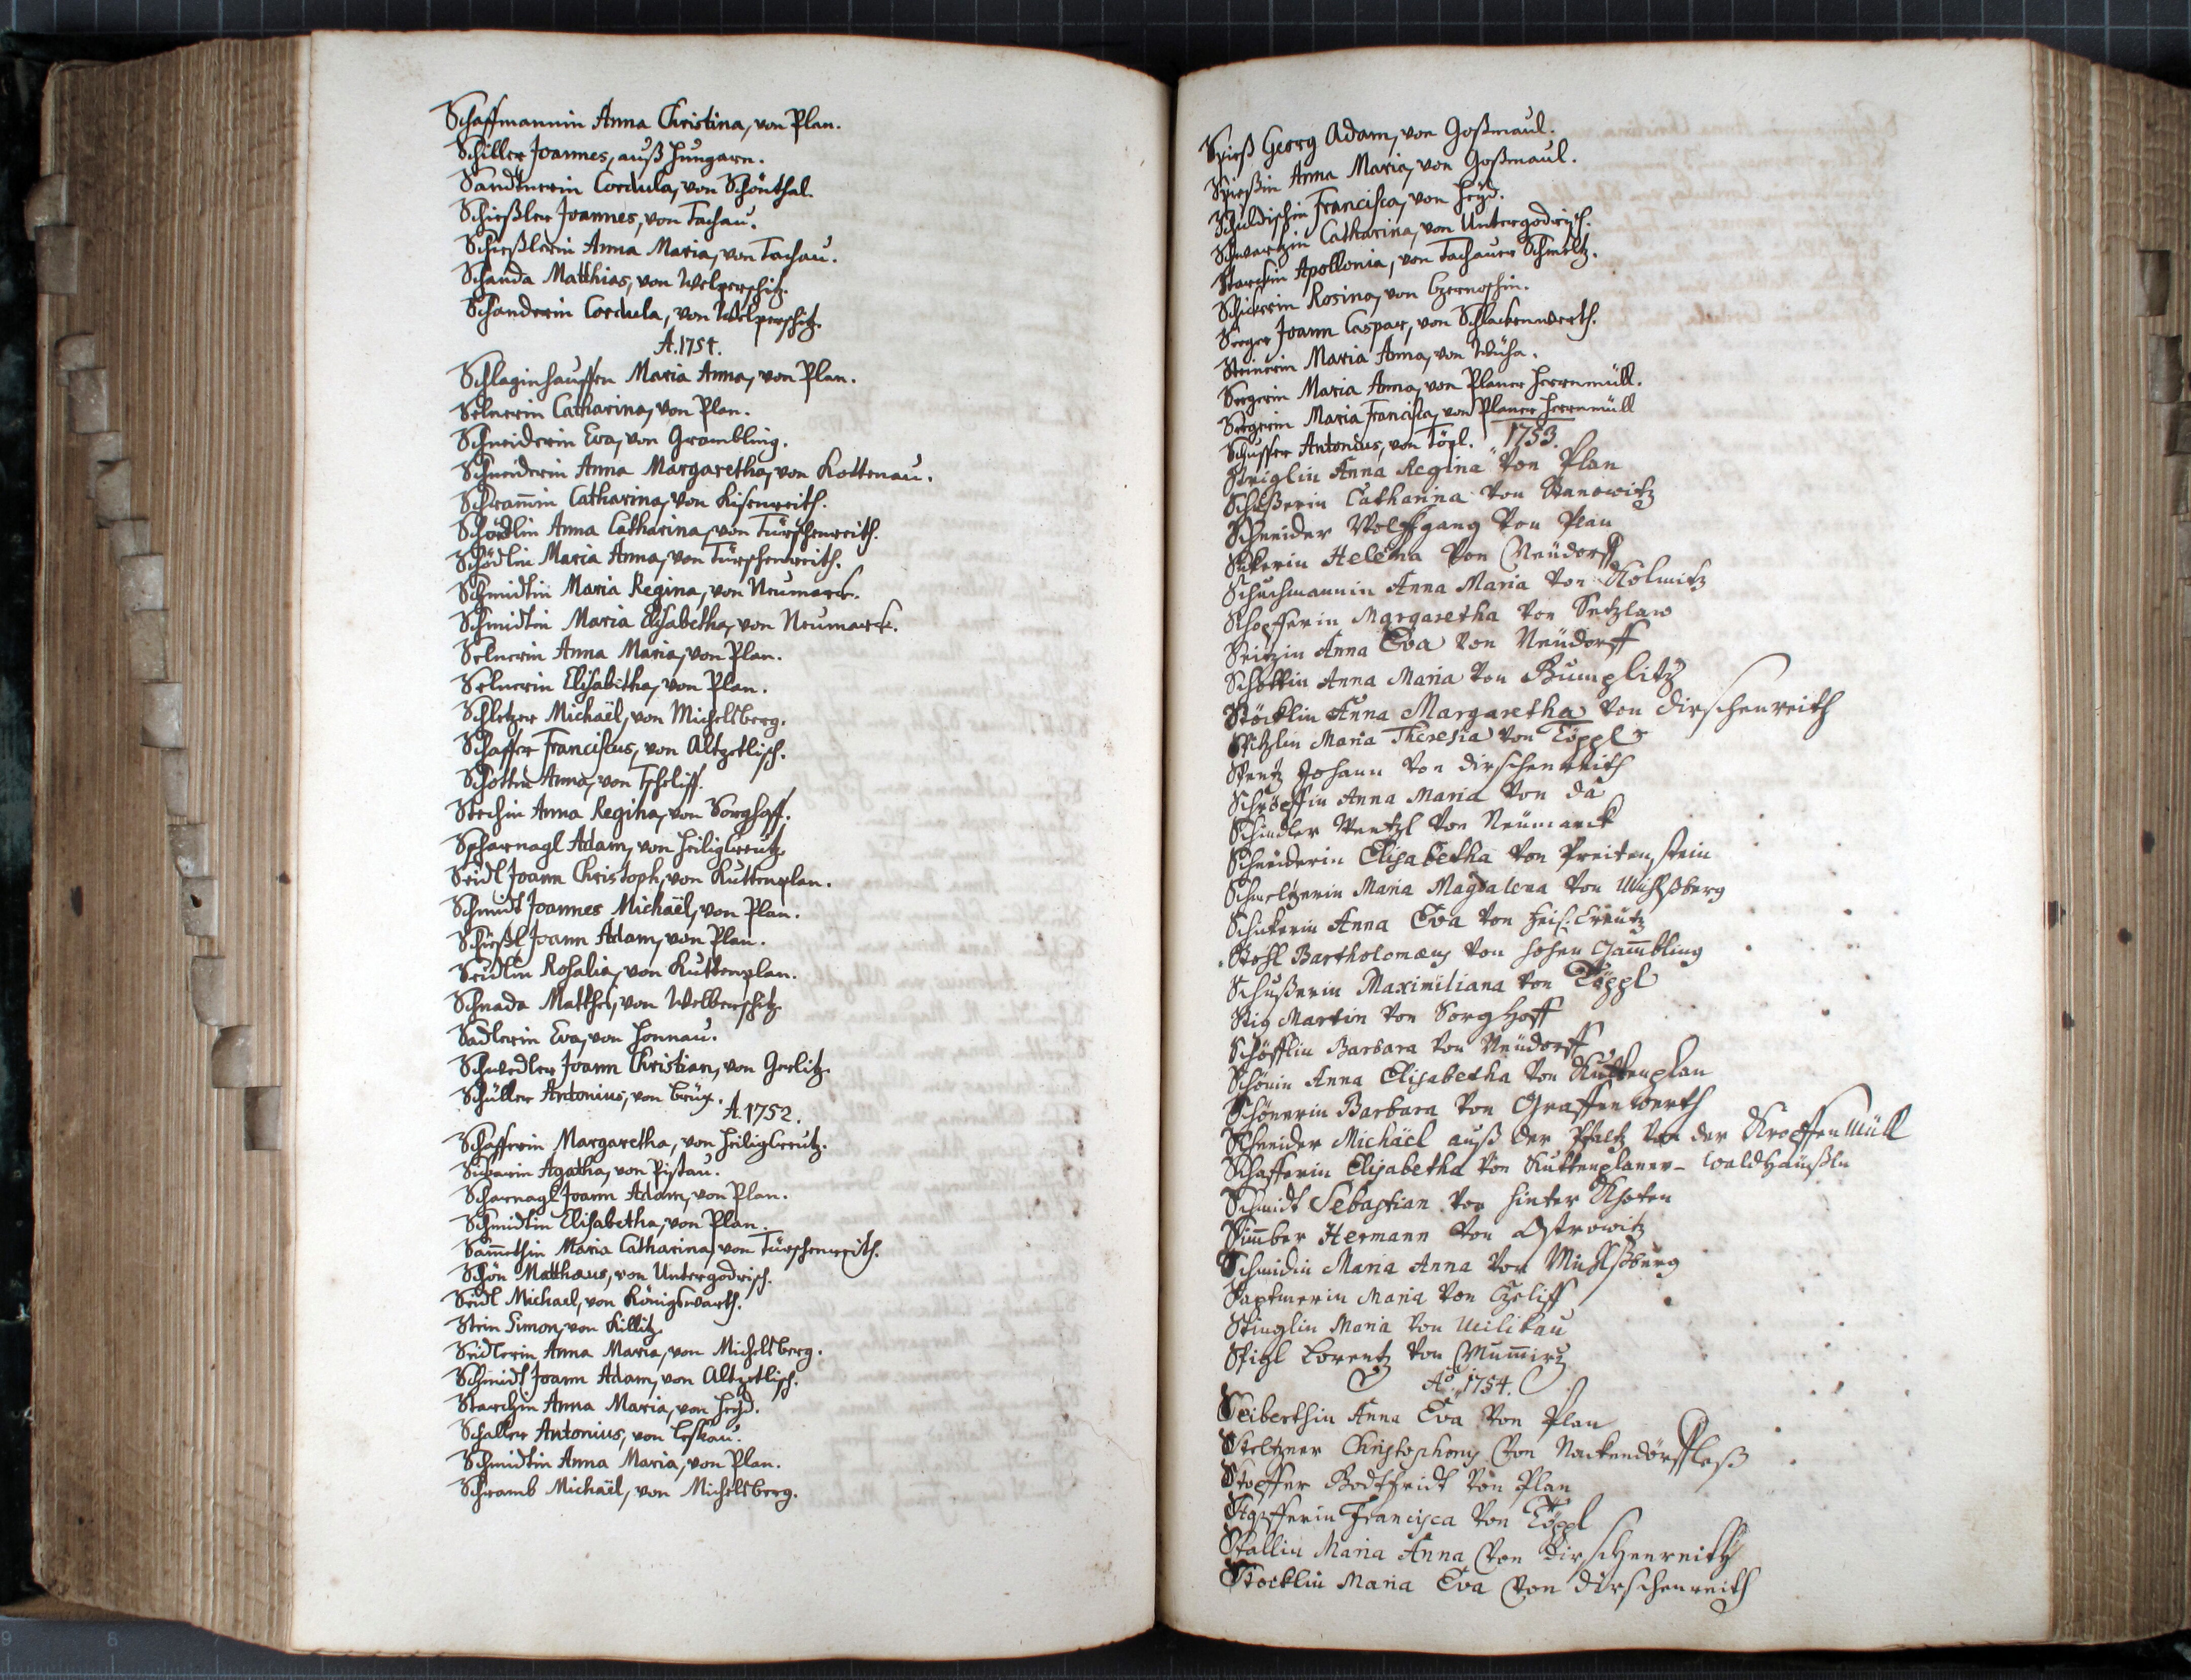 Schaffmannin Anna Christina, von Plan.
Schiller Joannes, auß Hungarn.
Sandtnerin Cordula, von Schönthal.
Schießler Joannes, von Tachau.
Schießlerin Anna Maria, von Tachau.
Schanda Matthias, von Welperschitz.
Schanderin Cordula, von Welperschitz.
A. 1751.
Schlaginhauffen Maria Anna, von Plan.
Selnerin Catharina, von Plan.
Schneiderin Eva, von Grambling.
Schneiderin Anna Margaretha, von Kottenau.
Schram̄in Catharina, von
Schödlin Anna Catharina, von Türschenreith.
Schödlin Maria Anna, von Türschenreith.
Schmidtin Maria Regina, von Neumarck.
Schmidtin Maria Elisabetha, von Neumarck.
Selnerin Anna Maria, von Plan.
Selnerin Elisabetha, von Plan.
Schletzer Michaël, von Michelsberg.
Schaffer Franciscus, von Altzetlisch.
Schottin Anna, von Tscheliff.
Stechin Anna Regina, von Sorghoff.
Scharnagl Adam, von Heiligkreutz.
Seidl Joann Christoph, von Kuttenplan.
Schmidt Joannes Michaël, von Plan.
Schießl Joann Adam, von Plan.
Seidlin Rosalia, von Kuttenplan.
Schnada Matthes, von Welberschitz.
Sadlerin Eva, von Honnau.
Schwedler Joann Christian, von Gerlitz.
Schüller Antonius, von Brüx.
A. 1752.
Schafferin Margaretha, von Heiligkreutz.
Agatha, von Pistau.
Scharnagl Joann Adam, von Plan.
Schmidtin Elisabetha, von Plan.
Sam̄ethin Maria Catharina, von Türschenreith.
Schön Matthaeus, von Untergodrisch.
Seidl Michael, von Königswarth.
Stein Simon, von Killitz.
Seidlerin Anna Maria, von Michelsberg.
Schmidt Joann Adam, von Altzetlisch.
Starckin Anna Maria, von Heyd.
Schaller Antonius, von Leskau.
Schmidtin Anna Maria, von Plan.
Schramb Michaël, von Michelsberg.
Spieß Georg Adam, von Goßmaul.
Spießin Anna Maria, von Goßmaul.
Francisca, von Heyd.
Schwartzin Catharina, von Untergodrisch.
Starckin Apollonia, von Tachauer Schmeltz.
Schickerin Rosina, von Czernoschin.
Seeger Joann Caspar, von Schlackenwerth.
Steinerin Maria Anna, von Wüha.
Seegerin Maria Anna, von Planer Herrnmüll.
Seegerin Maria Francisca, von Planer Herrnmüll
Schusser Antonius, von Töpl. 1753.
Striglin Anna Regina von Plan
Schußerin Catharina von Stanowitz
Schneider Wolffgang von Plan
Helena von Neüdorff
Schuchmannin Anna Maria von Kolmitz
Schopfferin Margaretha von
Seitzin Anna Eva von Neüdorff
Schottin Anna Maria von Bumplitz
Stöcklin Anna Margaretha von dirschenreith
Spitzlin Maria Theresia von Töppl
Johann von dirschenreith
Schröpffin Anna Maria von da
Schindler Wentzl von Neümarck
Schneiderin Elisabetha von Preitenstein
Schmeltzerin Maria Magdalena von Michlßberg
Anna Eva von Heil: Creütz
Stohl Bartholomæus von Hohen Jam̄bling
Schußerin Maximiliana von Töppl
Martin von Sorghoff
Schöfflin Barbara von Neüdorff
Schönin Anna Elisabetha von Kuttenplan
Schönerin Barbara von Graffenwerth
Schneider Michäel auß der Pfaltz von der Kropffenmüll
Schafferin Elisabetha von Kuttenplaner-Waldhäußln
Schmidt Sebastian von hinter Khoten
Sim̄ber Hermann von Ostrowitz
Schmidin Maria Anna von Michlßberg
Maria von Czeliff
Stinglin Maria von Milikau
Spigl Lorentz von
Aō. 1754.
Seiberthin Anna Eva von Plan
Steltzner Christophorus von Nackendörffleß
Stopffer Godtfridt von Plan
Stopfferin Francisca von Töppl
Stallin Maria Anna von Dirschenreith
Stocklin Maria Eva von dirschenreith